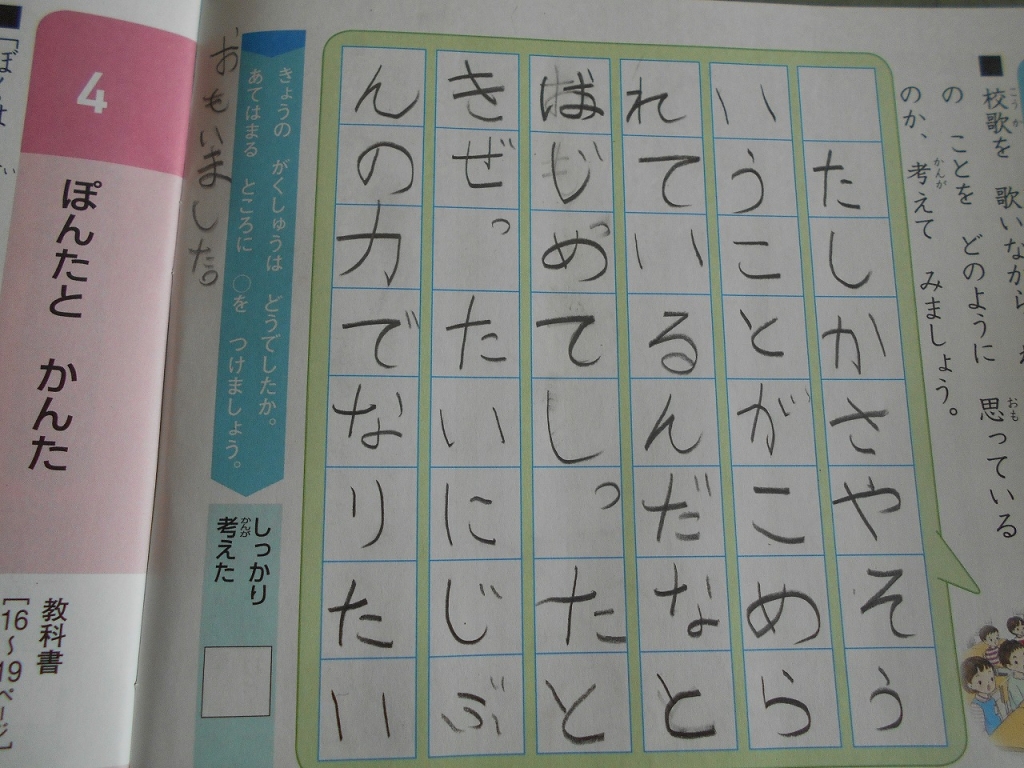 校歌を 歌いながら
の ことを どのように 思っている
のか、考えて みましょう。
たしかさやそう
いうことがこめら
れているんだなと
ばじめてしったと
きぜったいにじぶ
んの力でなりたい
おもいました。
きょうの がくしゅうは どうでしたか。
あてはまる ところに ○を つけましょう。
しっかり
考えた
4
ぽんたと かんた
教科書
[16～19ページ]